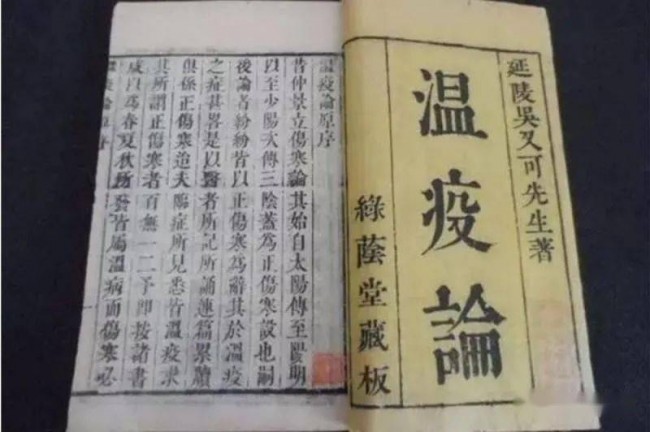 延陵吳又可先生著
温疫論
綠蔭堂藏板
温疫論原序
昔仲景立傷寒論其始自太陽傳至陽明
以至少陽次傳三陰蓋為正傷寒設也嗣
後論者紛紛皆以正傷寒為辭其於温疫
之症甚畧是以醫者所記所誦連篇累牘
俱係正傷寒迨夫臨症所見悉皆温疫求
其所謂正傷寒者百無一二予即按諸書
咸以為春夏秋所發皆屬温病而傷寒必
温疫論原序